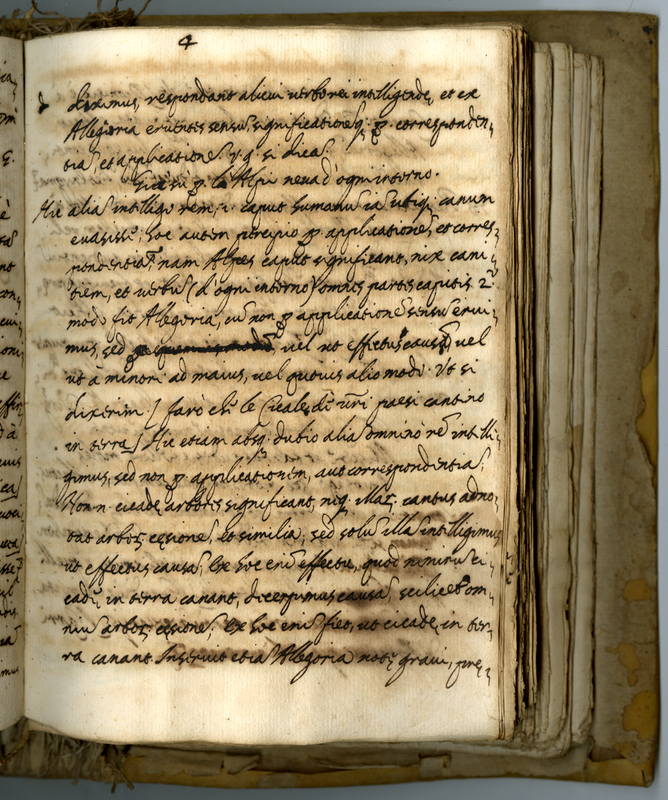 4
diximus, respondant alicui verborũ intelligendę, et ex
Allegoria eruentes sensũ, significationeq; ꝓ corresponden-
tiã, et applicationẽ v. g. si dicã.
Già sù p. le Alpi neva d'ogni intorno.
Hic aliã intelligo rem, i. caput humanũ iã ubiq; canum
evasisse; hoc autem percipio ꝓ applicationẽ, et corres-
pondentiã, nam Alpes caput significant, nix cani-
tiem, et verbũ (d'ogni intorno) omnes partes capitis. 2.º
modo fit Allegoria, cũ non ꝓ applicationẽ sensũ erui-
mus, sed vel ut effectus causã, vel
ut à minori ad maius, vel quovis alio modo. Ut si
dixerim / farò chè le Cicale di vr̃i paesi cantino
in terra / Hic etiam absq; dubio aliã omninò rẽ intelli-
gimus, sed non ꝓ applicationem, aut correspondentiã;
Non n. cicadę arbores significant, niq; cantus adno-
tat arborũ cęsionẽ, et similia; sed solũ illa intelligimus
ut effectus causã. Ex hoc enĩ effectu, quod nimirũ ci-
cadę, in terra canant, decerpimus causã, scilicet om-
niũ arborũ cęsionẽ. Ex hoc enĩ fiet, ut cicadę in ter-
ra canant. Inservit etiã Allegoria notę gravi, pre-